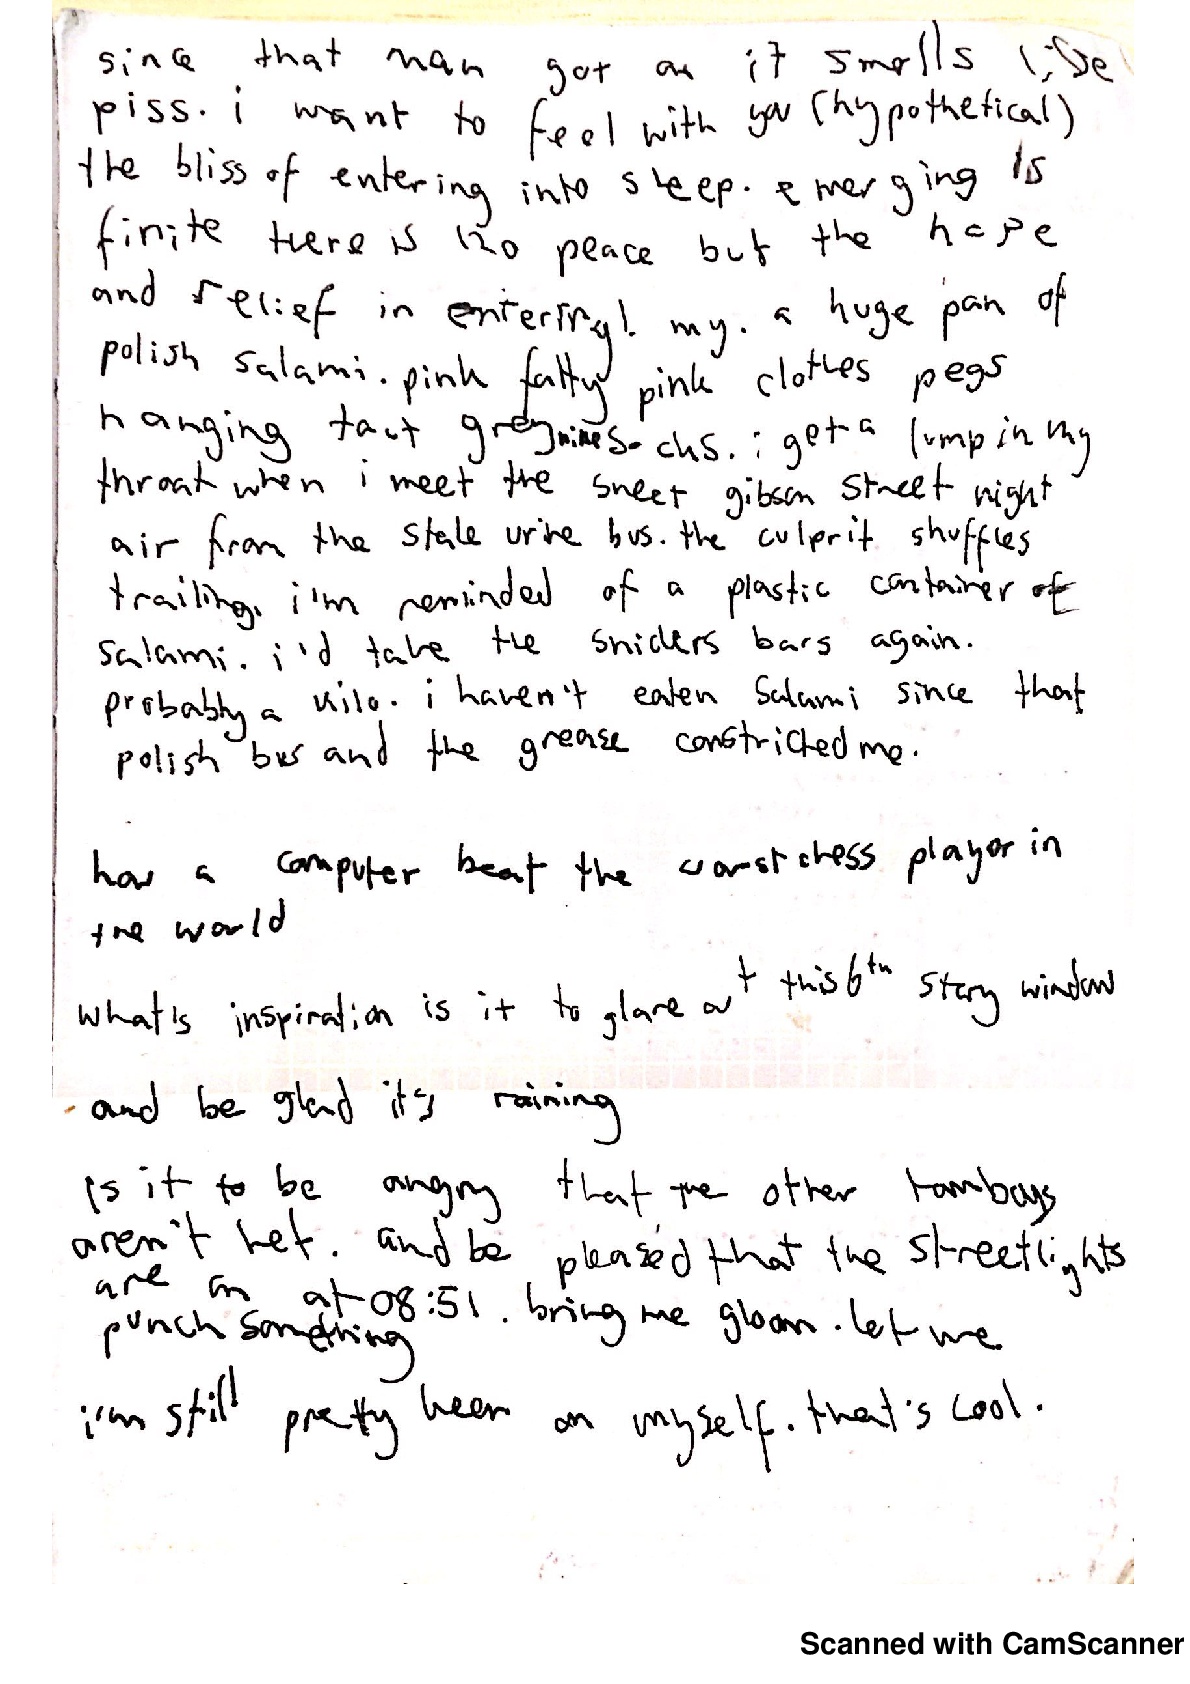 since that man got on it smells like
piss. i want to feel with you (hypothetical)
the bliss of entering into sleep. emerging is
finite there is no peace but the hope
and relief in entering! my. a huge pan of
polish salami. pink fatty pink clothes pegs
hanging taut grey socks. i get a lump in my
throat when i meet the sweet gibson street night
air from the stale urine bus. the culprit shuffles
trailing. i'm reminded of a plastic container of
salami. i'd take the snickers bars again.
probably a kilo. i haven't eaten salami since that
polish bus and the grease constricted me.
how a computer beat the worst chess player in
the world
what's inspiration is it to glare out this 6th story window
and be glad it's raining
is it to be angry that the other tombays
aren't wet. and be pleased that the streetlights
are on at 08:51. bring me gloom. let me
punch something
i'm still pretty keen on myself. that's cool.
Scanned with CamScanner